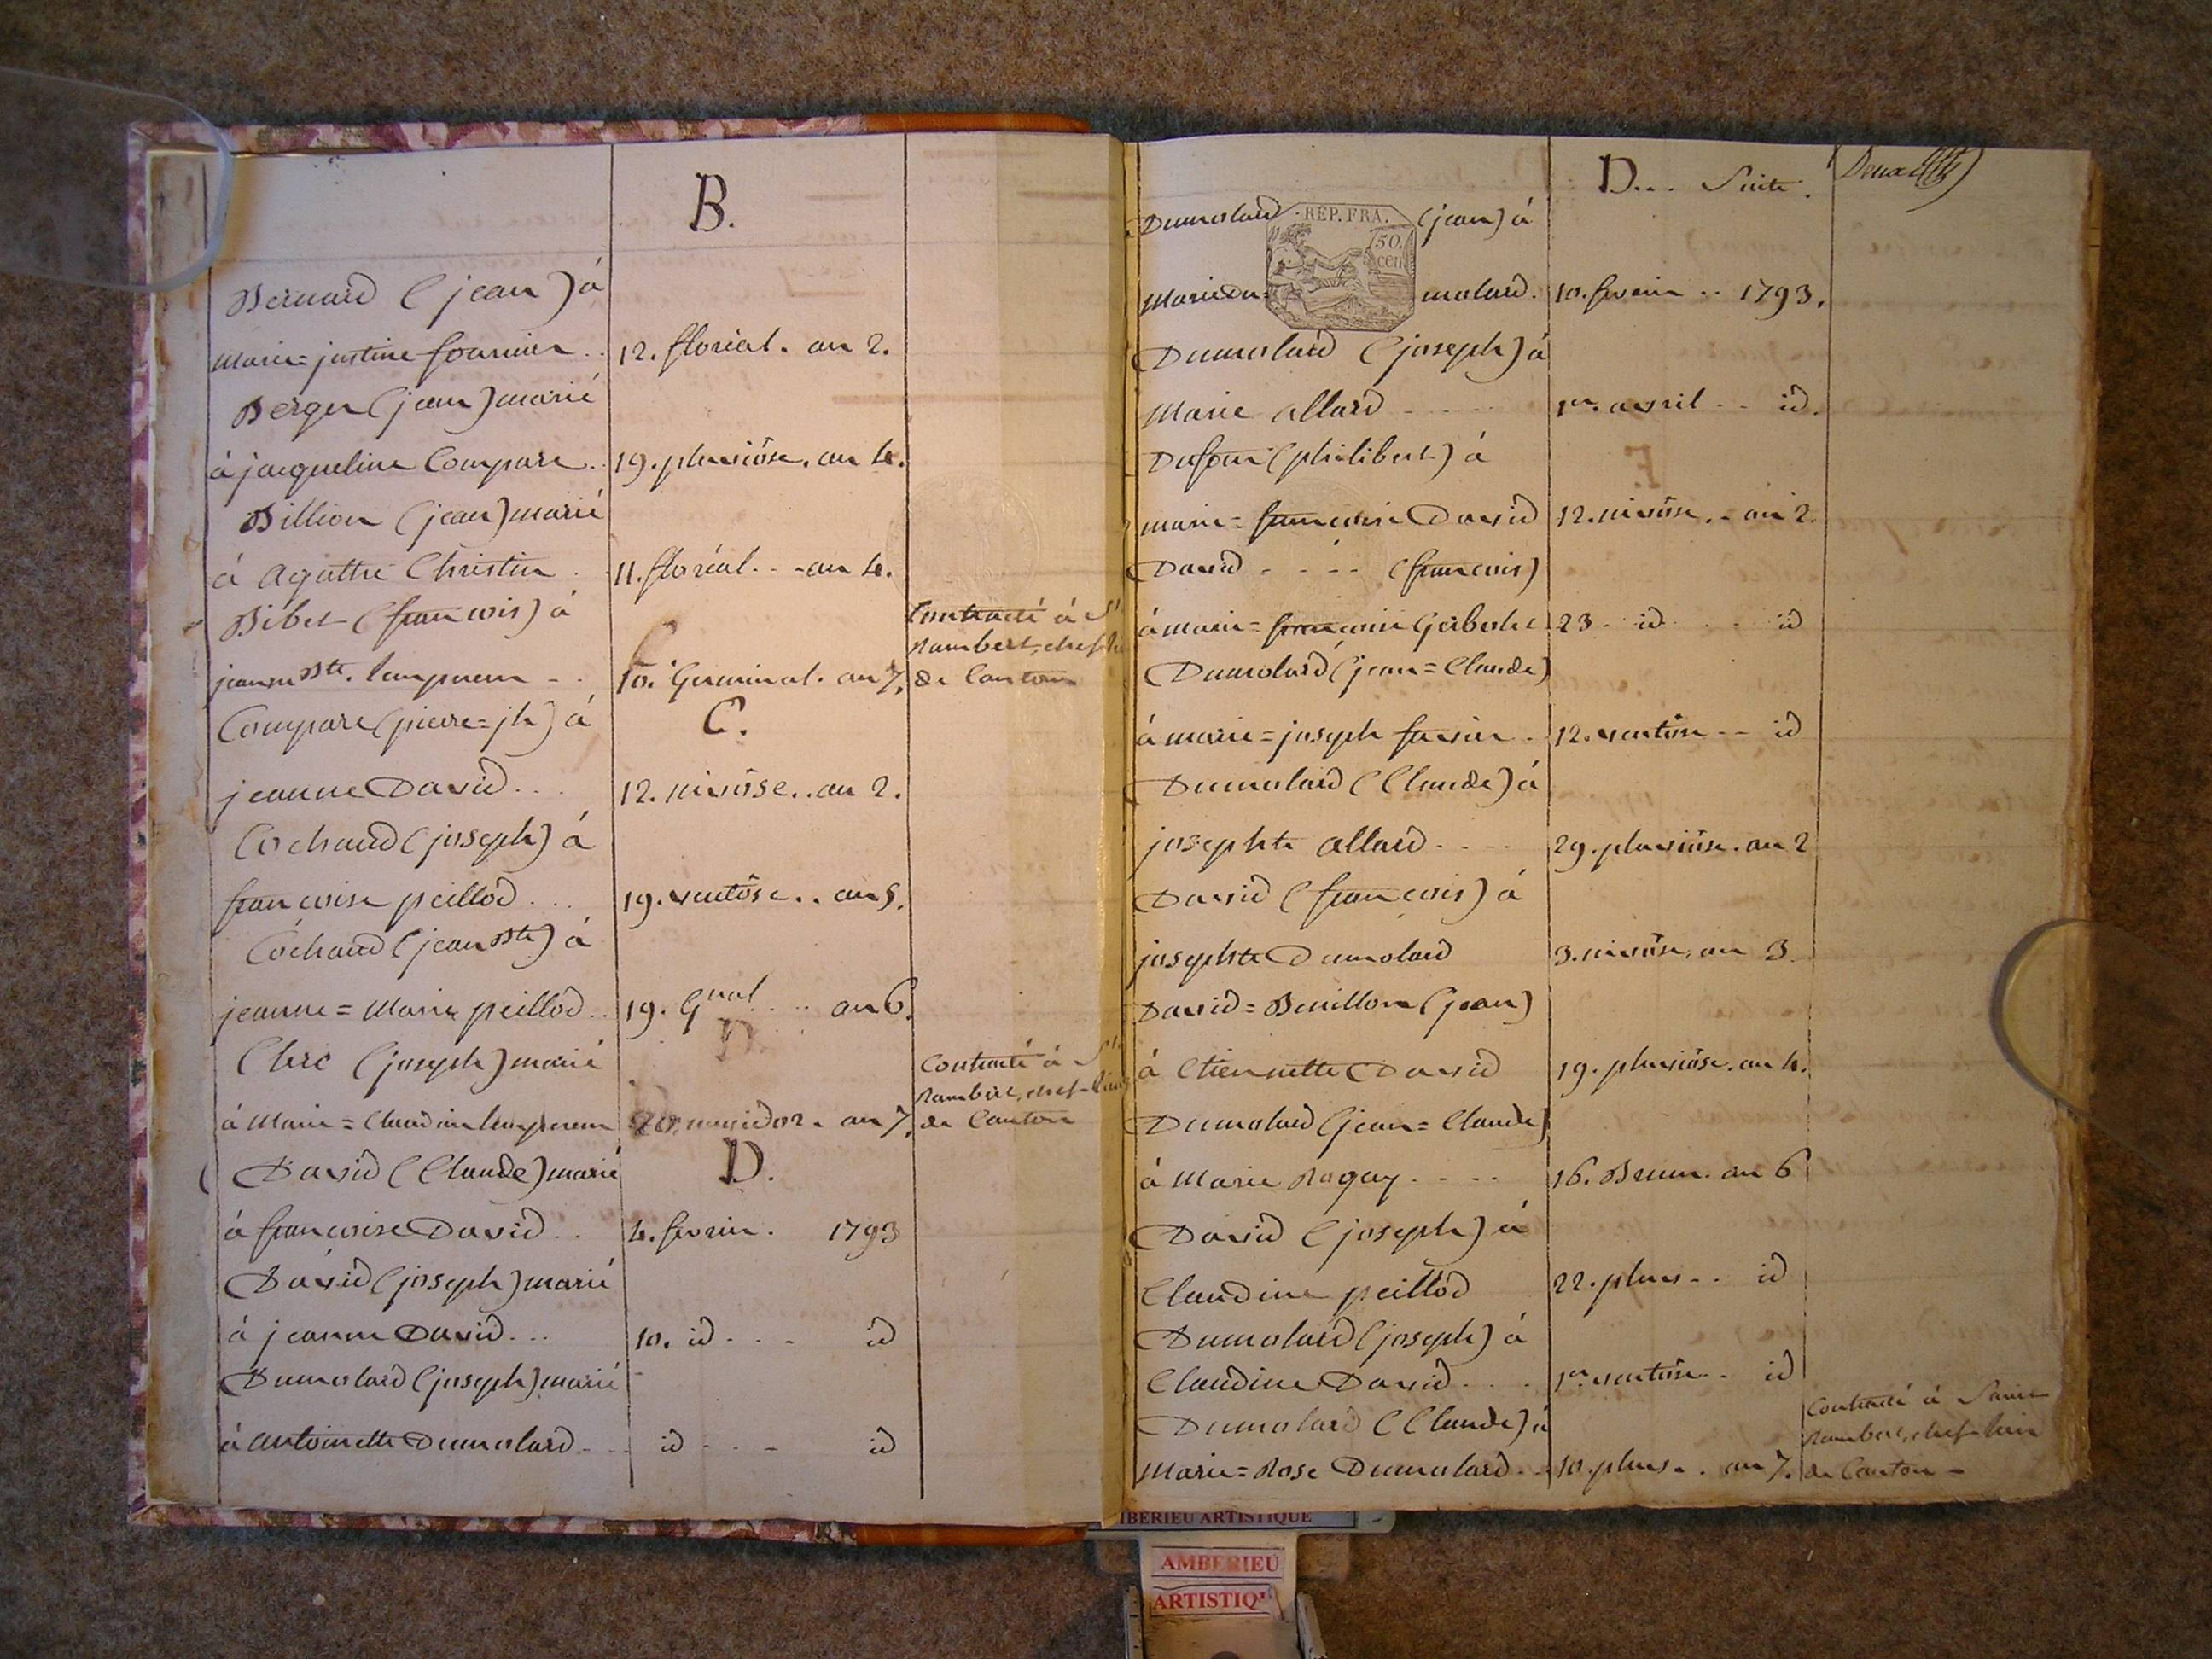 B.
Bernard (jean) á
Marie=justine fournier .. 12. floréal. an 2.
Berger (jean) marié
á jacqueline Compare .. 19. pluviôse. an 4.
Billion (jean) marié
á Agathe Christin . 11. floréal. - - an 4.
Bibet (francois) á
jeanne Bte. - . 10. Germinal. an 7.
Contracté á St.
Rambert, chef-li
de Canton
C.
Compare (pierre=jh) á
jeanne David . . . 12. nivôse. . an 2.
Cochaud (joseph) á
francoise peillod . . . 19. ventôse. . an 5.
Cochaud (jean Bte) á
jeanne=Marie peillod . . 19. Gnal . . . an 6.
Clerc (joseph) marié
á Marie=Claudine 20. messidor. an 7.
Contracté á St.
Rambert, chef-lieu
de Canton
D.
David (Claude) marié
á francoise David . . 4. fevrier. 1793
David (joseph) marié
á jeanne David . . . 10. id - - - id
Dumolard (joseph) marié
á antoinette Dumolard - - - id - - - id
D... Suite. Deux
Dumolard (jean) á
REP. FRA.
50.
cen
Marie Du= molard. 10. fevrier - - 1793.
Dumolard (joseph) á
Marie allard - - - - 1er. avril - - id.
Dufour (philibert) á
marie=francoise David 12. nivôse. - an 2.
David - - - - (francois)
á marie=francoise 23 - id - - - id
Dumolard (jean=Claude)
á marie=joseph . 12. ventôse - - id
Dumolard (Claude) á
josephte allard - - - - 29. pluviôse. an 2
David (francois) á
josephte Dumolard 3. nivôse. an 3.
David=Bouillon (jean)
á Etiennette David 19. pluviôse. an 4.
Dumolard (jean=Claude)
á Marie Ragay - - - - 16. Brum. an 6
David (joseph) á
Claudine peillod 22. pluv - - id
Dumolard (joseph) á
Claudine David - - - . 1er. ventôse - - id
Dumolard (Claude) á
Marie=Rose Dumolard - - 10. pluv - . an 7.
Contracté á Saint
Rambert, chef-lieu
de Canton -
IBERIEU ARTISTIQUE
AMBERIEU
ARTISTIQU